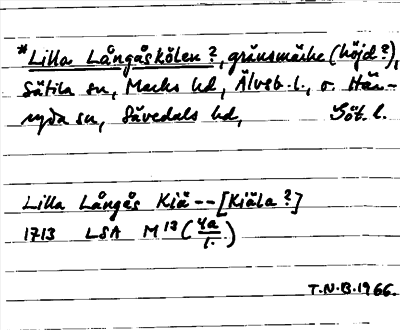 *Lilla Långåskölen?, gränsmärke (höjd?),
Sätila sn, Marks hd, Älvsb. l., o. Här-
ryda sn, Sävedals hd, Göt. l.
Lilla Långås Kiä--[Kiäla?]
1713 LSA M 12 (4a/1.)
T.N.B. 1966.